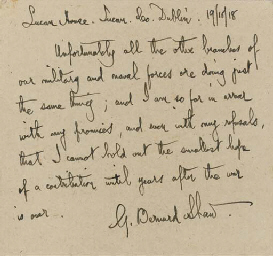 Lucan House. Lucan. Co. Dublin. 19/10/18
Unfortunately all the other branches of
our military and naval forces are doing just
the same thing; and I am so far in arrear
with my promises, and even with my refusals,
that I cannot hold out the smallest hope
of a contribution until years after the war
is over.
G. Bernard Shaw.